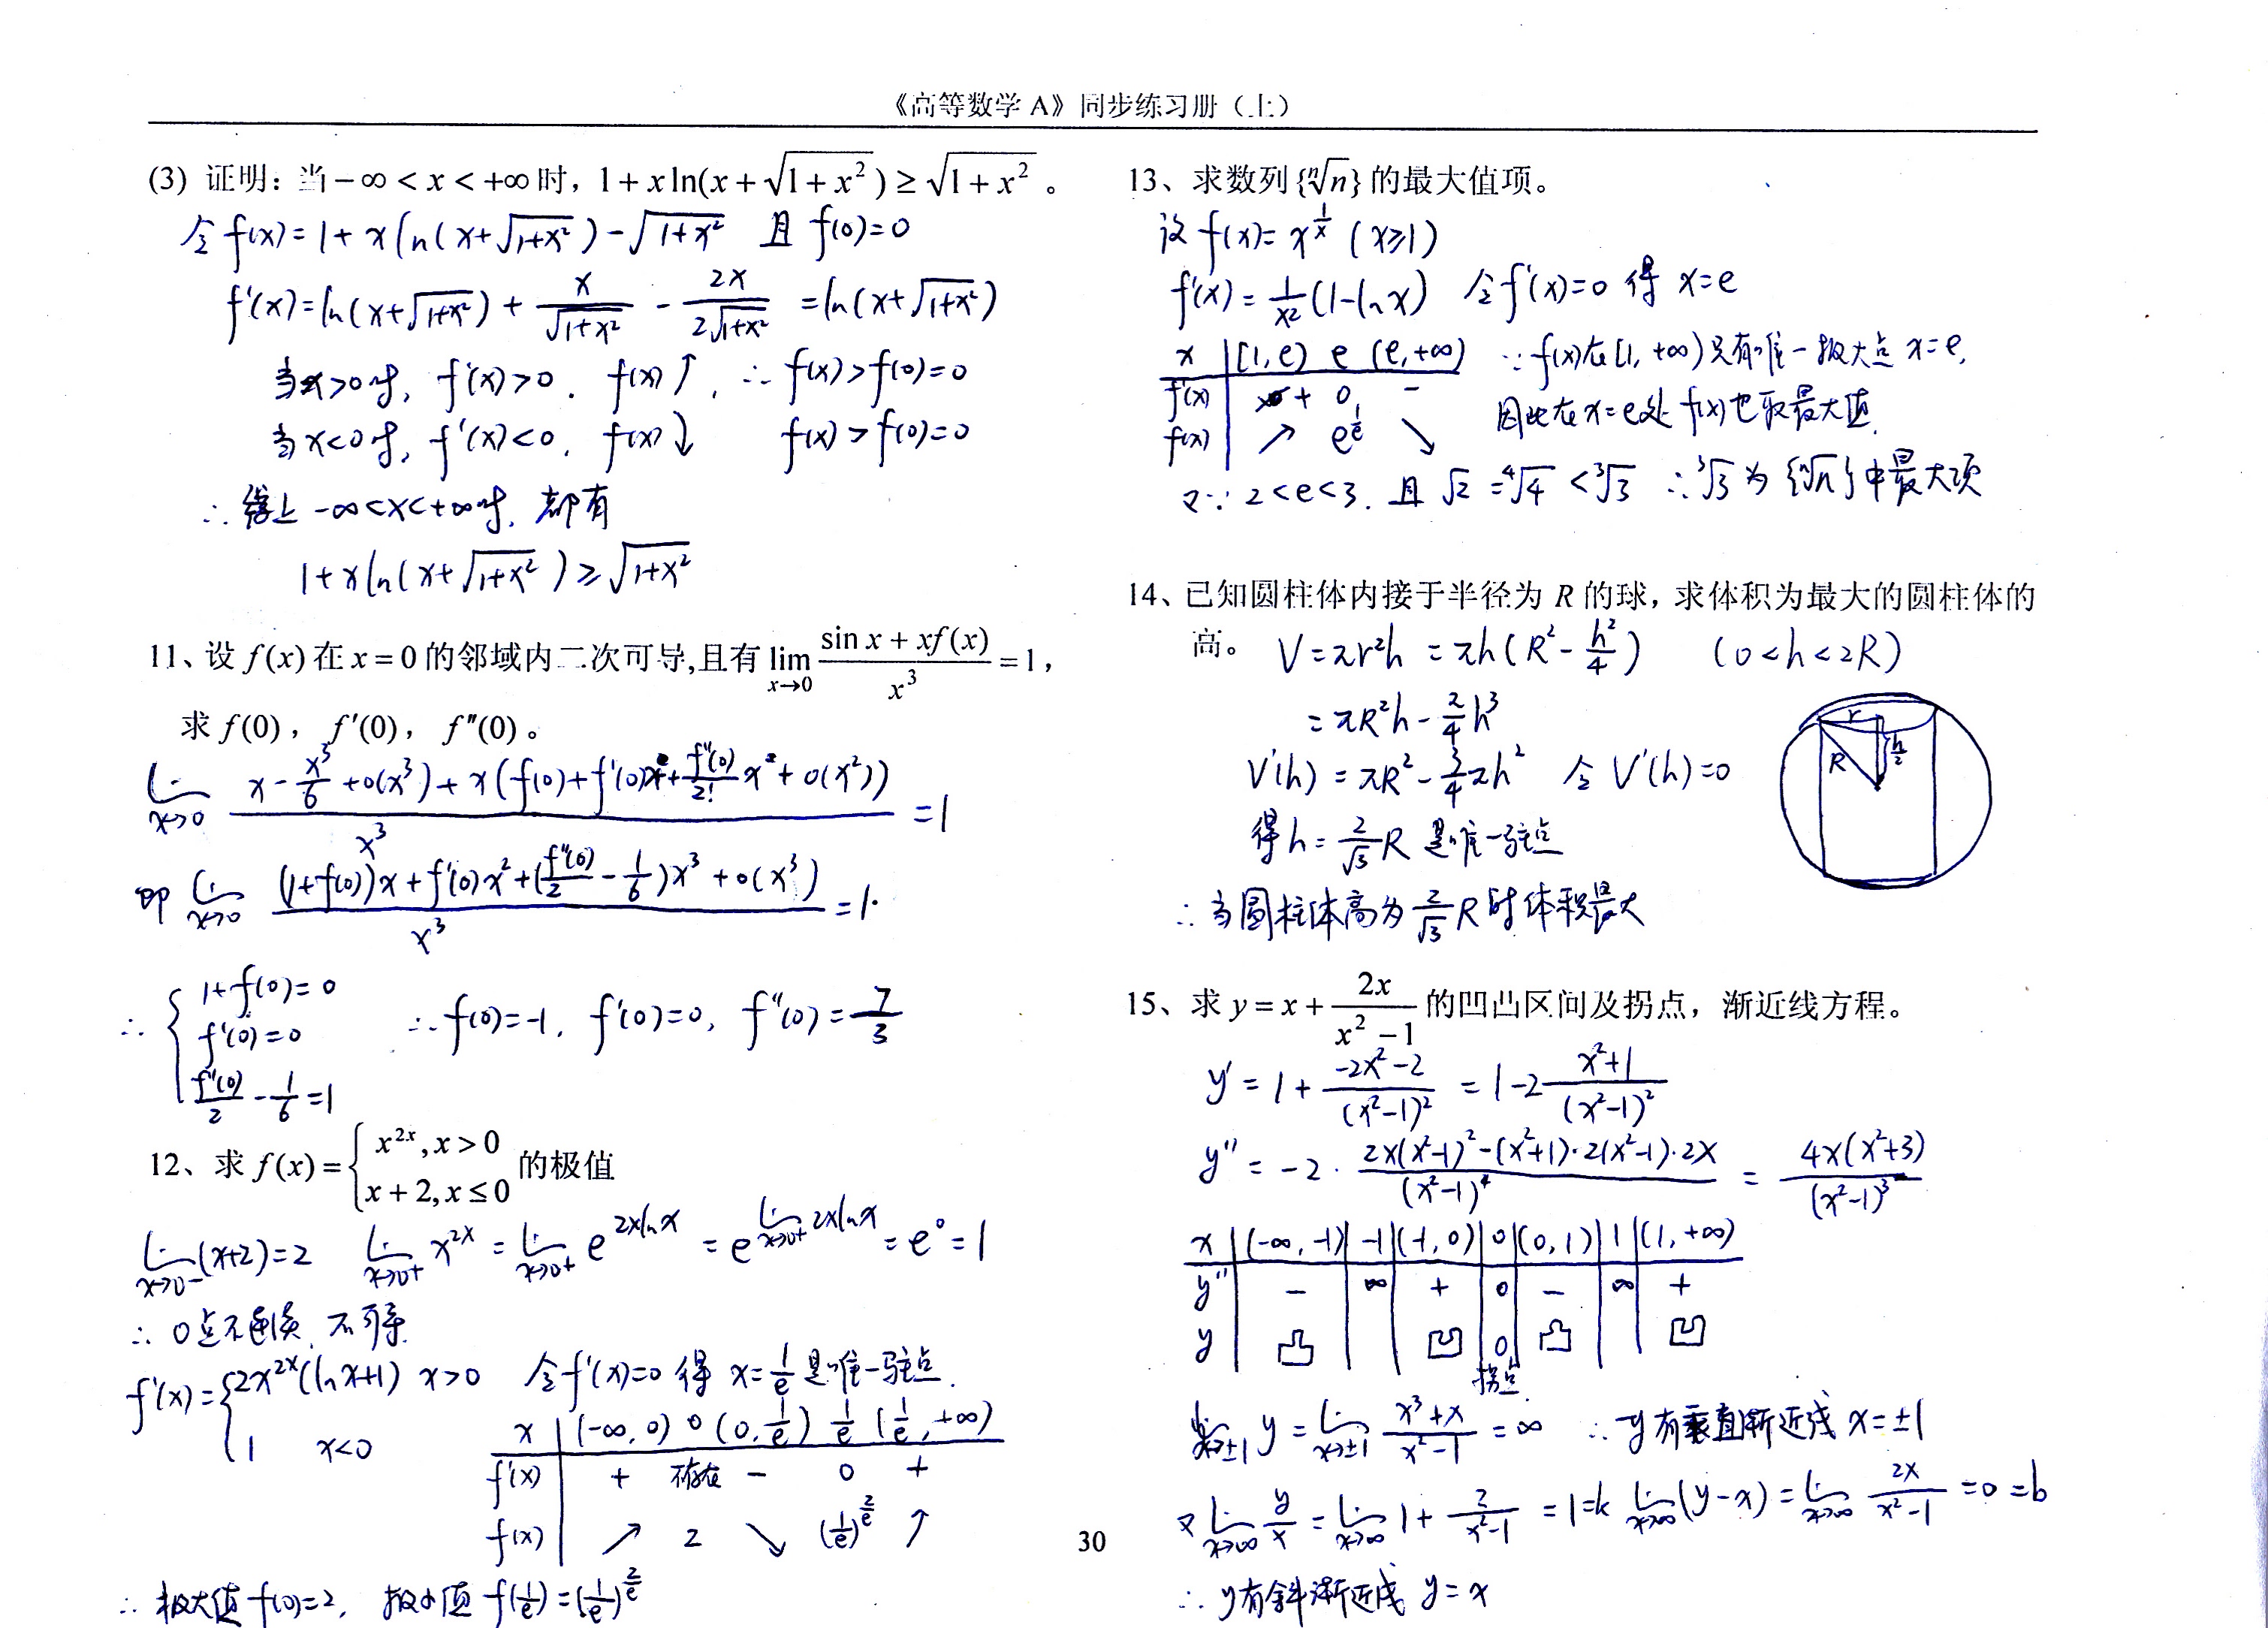 《高等数学 A》同步练习册（上）
(3) 证明：当 −∞ < x < +∞ 时，1 + x ln(x + √(1 + x²)) ≥ √(1 + x²) 。
令 f(x) = 1 + x ln(x + √(1+x²)) − √(1+x²) 且 f(0) = 0
f'(x) = ln(x + √(1+x²)) + x/√(1+x²) − 2x/(2√(1+x²)) = ln(x + √(1+x²))
当x>0时, f'(x)>0. f(x)↑, ∴ f(x)>f(0)=0
当x<0时, f'(x)<0, f(x)↓ f(x)>f(0)=0
∴ 综上 −∞<x<+∞时, 都有
1 + x ln(x + √(1+x²)) ≥ √(1+x²)
11、设 f(x) 在 x = 0 的邻域内二次可导,且有 lim_{x→0} (sin x + xf(x))/x³ = 1，
求 f(0)， f′(0)， f″(0)。
lim_{x→0} (x − x³/6 + o(x³) + x(f(0) + f'(0)x + f''(0)/2! x² + o(x²)))/x³ = 1
即 lim_{x→0} ((1+f(0))x + f'(0)x² + (f''(0)/2 − 1/6)x³ + o(x³))/x³ = 1.
∴ { 1+f(0)=0
f'(0)=0 ∴ f(0)=−1, f'(0)=0, f''(0)=7/3
f''(0)/2 − 1/6 = 1
12、求 f(x) = { x^{2x}, x > 0
x + 2, x ≤ 0 的极值
lim_{x→0−}(x+2)=2 lim_{x→0+} x^{2x} = lim_{x→0+} e^{2x ln x} = e^{lim_{x→0+} 2x ln x} = e⁰ = 1
∴ 0点不连续, 不可导.
f'(x) = { 2x^{2x}(ln x+1) x>0 令f'(x)=0 得 x=1/e 是唯一驻点.
1 x<0
x | (−∞, 0) 0 (0, 1/e) 1/e (1/e, +∞)
f'(x) | + 不存在 − 0 +
f(x) | ↗ 2 ↘ (1/e)^{2/e} ↗
∴ 极大值 f(0)=2, 极小值 f(1/e) = (1/e)^{2/e}
13、求数列 {ⁿ√n} 的最大值项。
设 f(x) = x^{1/x} (x≥1)
f'(x) = 1/x² (1−ln x) 令f'(x)=0 得 x=e
x | [1,e) e (e,+∞) ∵ f(x)在[1, +∞)只有唯一极大点 x=e,
f'(x) | + 0 − 因此在x=e处 f(x)也取最大值.
f(x) | ↗ e^{1/e} ↘
又∵ 2<e<3. 且 √2 = ⁴√4 < ³√3 ∴ ³√3 为 {ⁿ√n} 中最大项
14、已知圆柱体内接于半径为 R 的球，求体积为最大的圆柱体的
高。 V = πr²h = πh(R² − h²/4) (0<h<2R)
= πR²h − π/4 h³
V'(h) = πR² − 3/4 πh² 令 V'(h)=0
r
R
h/2
得 h = 2/√3 R 是唯一驻点
∴ 当圆柱体高为 2/√3 R 时体积最大
15、求 y = x + 2x/(x² − 1) 的凹凸区间及拐点，渐近线方程。
y' = 1 + (−2x²−2)/(x²−1)² = 1−2 (x²+1)/(x²−1)²
y'' = −2 · (2x(x²−1)² − (x²+1)·2(x²−1)·2x)/(x²−1)⁴ = 4x(x²+3)/(x²−1)³
x | (−∞, −1) | −1 | (−1, 0) | 0 | (0, 1) | 1 | (1, +∞)
y'' | − | ∞ | + | 0 | − | ∞ | +
y | 凸 | | 凹 | 0 | 凸 | | 凹
拐点
lim_{x→±1} y = lim_{x→±1} (x³+x)/(x²−1) = ∞ ∴ y有垂直渐近线 x=±1
又 lim_{x→∞} y/x = lim_{x→∞} 1 + 2/(x²−1) = 1 = k lim_{x→∞}(y−x) = lim_{x→∞} 2x/(x²−1) = 0 = b
∴ y有斜渐近线 y=x
30